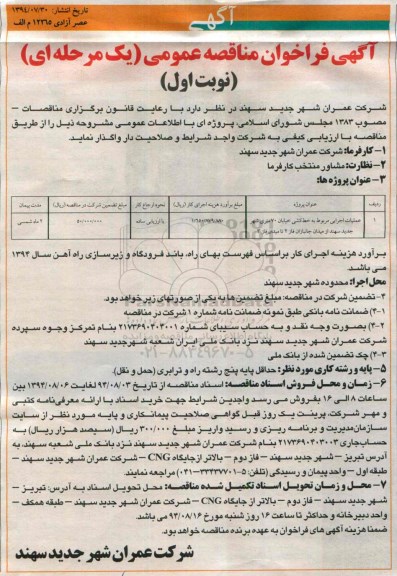 آگهی
تاریخ انتشار: ۱۳۹۴/۰۷/۳۰
عصر آزادی ۱۲۲۶۵ م الف
آگهی فراخوان مناقصه عمومی (یک مرحله ای)
(نوبت اول)
شرکت عمران شهر جدید سهند در نظر دارد با رعایت قانون برگزاری مناقصات –
مصوب ۱۳۸۳ مجلس شورای اسلامی، پروژه ای با اطلاعات عمومی مشروحه ذیل را از طریق
مناقصه با ارزیابی کیفی به شرکت واجد شرایط و صلاحیت دار واگذار نماید.
۱– کارفرما: شرکت عمران شهر جدید سهند
۲– نظارت: مشاور منتخب کارفرما
۳– عنوان پروژه ها:
ردیف عنوان پروژه مبلغ برآورد هزینه اجرای کار (ریال) نحوه ارجاع کار مبلغ تضمین شرکت در مناقصه (ریال) مدت پیمان
۱ عملیات اجرایی مربوط به خط کشی خیابان ۷۰ متری شهر با ارزیابی ساده ۲ ماه شمسی
جدید سهند از میدان جانبازان فاز ۲ تا
برآورد هزینه اجرای کار براساس فهرست بهای راه، باند فرودگاه و زیرسازی راه آهن سال ۱۳۹۴
می باشد.
محل اجرا: محدوده شهر جدید سهند
۴– تضمین شرکت در مناقصه: مبلغ تضمین ها به یکی از صورتهای زیر خواهد بود.
۴-۱) ضمانت نامه بانکی طبق نمونه ضمانت نامه شماره ۱ شرکت در مناقصه
۴-۲) بصورت وجه نقد و به حساب سیبای شماره ۲۱۷۳۶۹۰۴۰۳۰۰۱ بنام تمرکز وجوه سپرده
شرکت عمران شهر جدید سهند نزد بانک ملی ایران شعبه شهر جدید سهند
۴-۳) چک تضمین شده از بانک ملی
۵– پایه و رشته کاری مورد نظر: حداقل پایه پنج رشته راه و ترابری (حمل و نقل).
۶– زمان و محل فروش اسناد مناقصه: اسناد مناقصه از تاریخ ۹۴/۰۸/۰۳ لغایت ۱۳۹۴/۰۸/۰۶ بین
ساعات ۸ الی ۱۶ بفروش می رسد واجدین شرایط جهت خرید اسناد با ارائه معرفی نامه کتبی
و مهر شرکت، پرینت یک روز قبل گواهی صلاحیت پیمانکاری و پایه مورد نظر از سایت
سازمان مدیریت و برنامه ریزی و رسید واریز مبلغ ۳۰۰/۰۰۰ ریال (سیصد هزار ریال) به
حساب جاری ۲۱۷۳۶۹۰۴۰۳۰۰۳ بنام شرکت عمران شهر جدید سهند نزد بانک ملی شعبه سهند، به
آدرس تبریز – شهر جدید سهند – فاز دوم – بالاتر از جایگاه CNG – شرکت عمران شهر جدید سهند –
طبقه اول – واحد پیمان و رسیدگی (تلفن: ۵-۳۳۴۳۷۷۰۱-۰۴۱) مراجعه نمایند.
۷– محل و زمان تحویل اسناد تکمیل شده مناقصه: محل تحویل اسناد به آدرس: تبریز –
شهر جدید سهند – فاز دوم – بالاتر از جایگاه CNG – شرکت عمران شهر جدید سهند – طبقه همکف –
واحد دبیرخانه و حداکثر تا ساعت ۱۶ روز شنبه مورخ ۹۴/۰۸/۱۶ می باشد.
ضمنا هزینه آگهی های فراخوان به عهده برنده مناقصه خواهد بود.
شرکت عمران شهر جدید سهند
۰۲۱-۸۸۳۴۹۶۷۰-۵